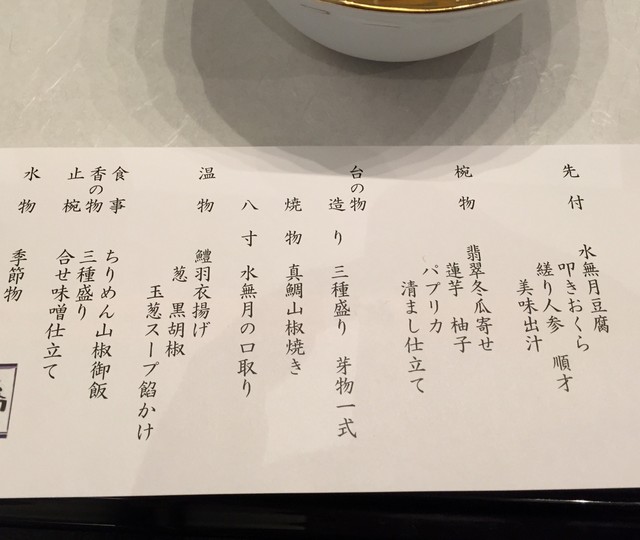 先付
水無月豆腐
叩きおくら 順才
縒り人参
美味出汁
椀物
翡翠冬瓜寄せ
蓮芋 柚子
パプリカ
清まし仕立て
台の物
造り 三種盛り 芽物一式
焼物 真鯛山椒焼き
八寸 水無月の口取り
温物
鱧羽衣揚げ
葱 黒胡椒
玉葱スープ餡かけ
食事 ちりめん山椒御飯
香の物 三種盛り
止椀 合せ味噌仕立て
水物 季節物